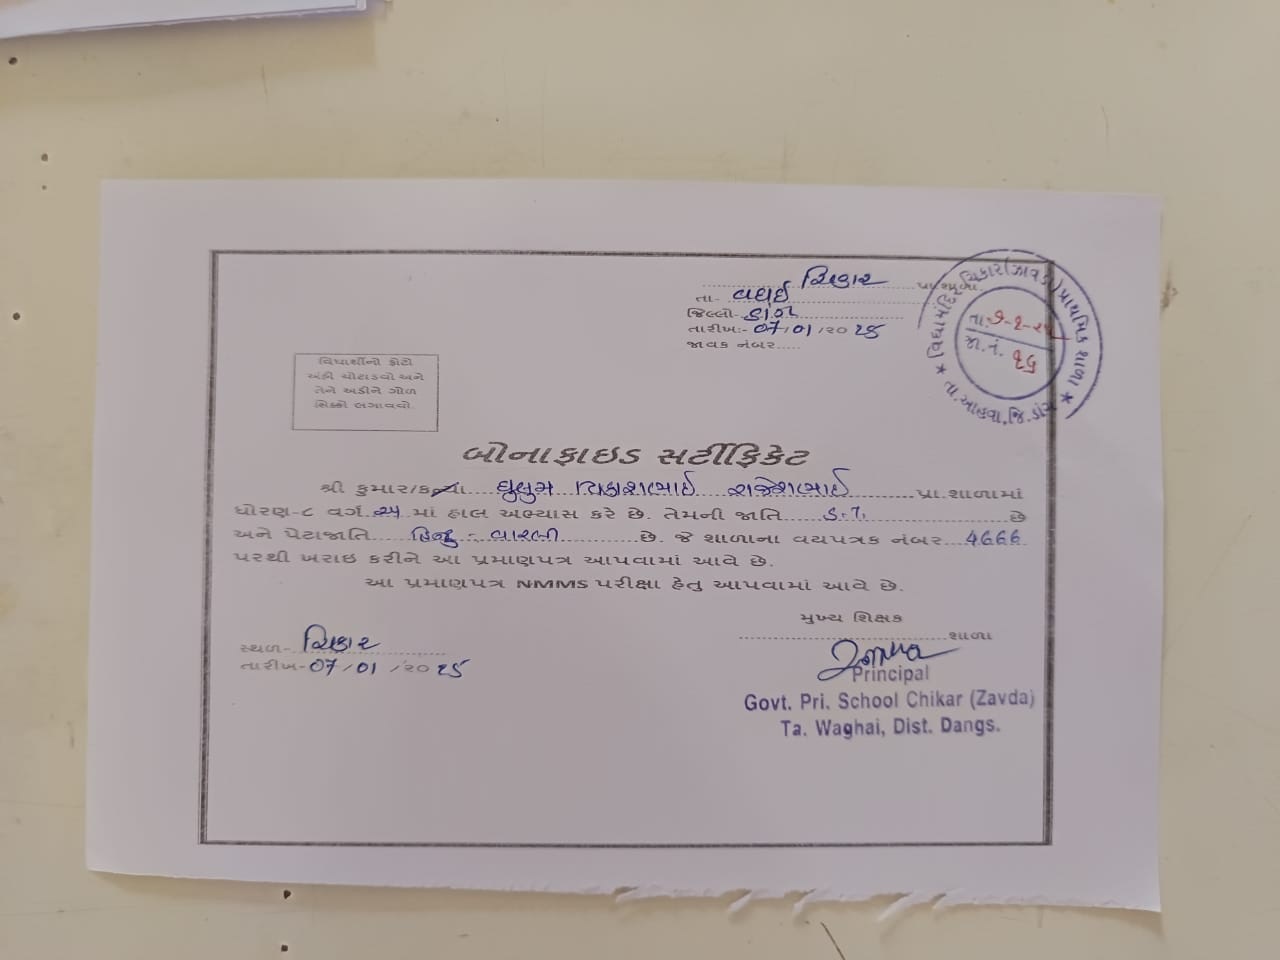 ચિકાર પ્રા.શાળા.
તા- વઘઇ
જિલ્લો- ડાંગ
તારીખ:- 07/01/2025
જાવક નંબર.....
* વિદ્યામંદિર ચિકાર(ઝાવડા) પ્રાથમિક શાળા * તા.આહવા,જિ.ડાંગ
તા.
જા.નં. ૧૬
વિદ્યાર્થીનો ફોટો
અહીં ચોટાડવો અને
તેને અડીને ગોળ
સિક્કો લગાવવો.
બોનાફાઇડ સર્ટીફિકેટ
શ્રી કુમાર/કન્યા રાજેશભાઈ પ્રા.શાળામાં
ધોરણ-૮ વર્ગ માં હાલ અભ્યાસ કરે છે. તેમની જાતિ છે
અને પેટાજાતિ હિન્દુ - વારલી છે. જે શાળાના વયપત્રક નંબર 4666
પરથી ખરાઇ કરીને આ પ્રમાણપત્ર આપવામાં આવે છે.
આ પ્રમાણપત્ર NMMS પરીક્ષા હેતુ આપવામાં આવે છે.
મુખ્ય શિક્ષક
શાળા
સ્થળ- ચિકાર
તારીખ- 07/01/2025
Principal
Govt. Pri. School Chikar (Zavda)
Ta. Waghai, Dist. Dangs.